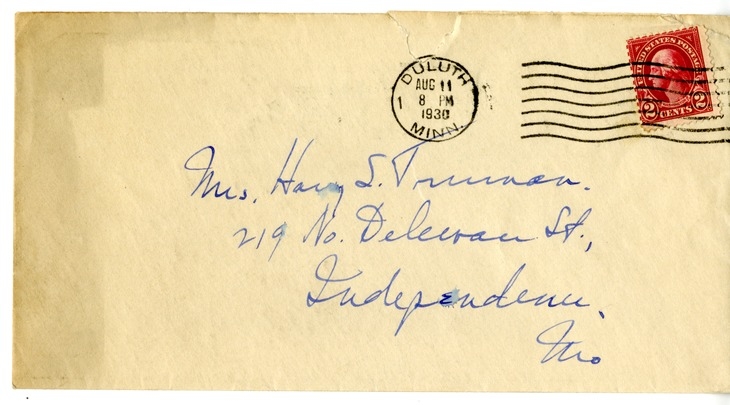 DULUTH
AUG 11
1 8 PM
1930
MINN.
UNITED STATES POSTAGE
2 CENTS 2
Mrs. Harry S. Truman.
219 No. Delewan St.,
Independence.
Mo